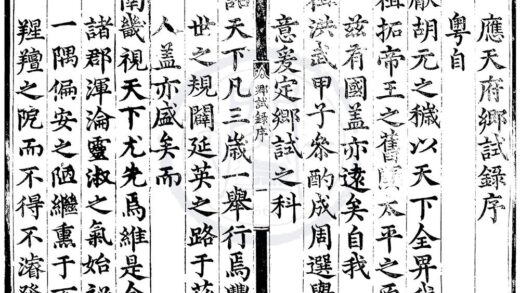 應天府鄉試錄序
粵自
胡元之穢以天下全畀
拓帝王之舊太平之
茲有國蓋亦遠矣自我
洪武甲子參酌成周選
意爰定鄉試之科
鄉試錄序 一
天下凡三歲一舉行焉
世之規闢延英之路于
人盖亦盛矣而
南畿視天下尤先焉維是
諸郡渾淪靈淑之氣始
一隅偏安之陋繼熏于
羶之阨而不得不濬